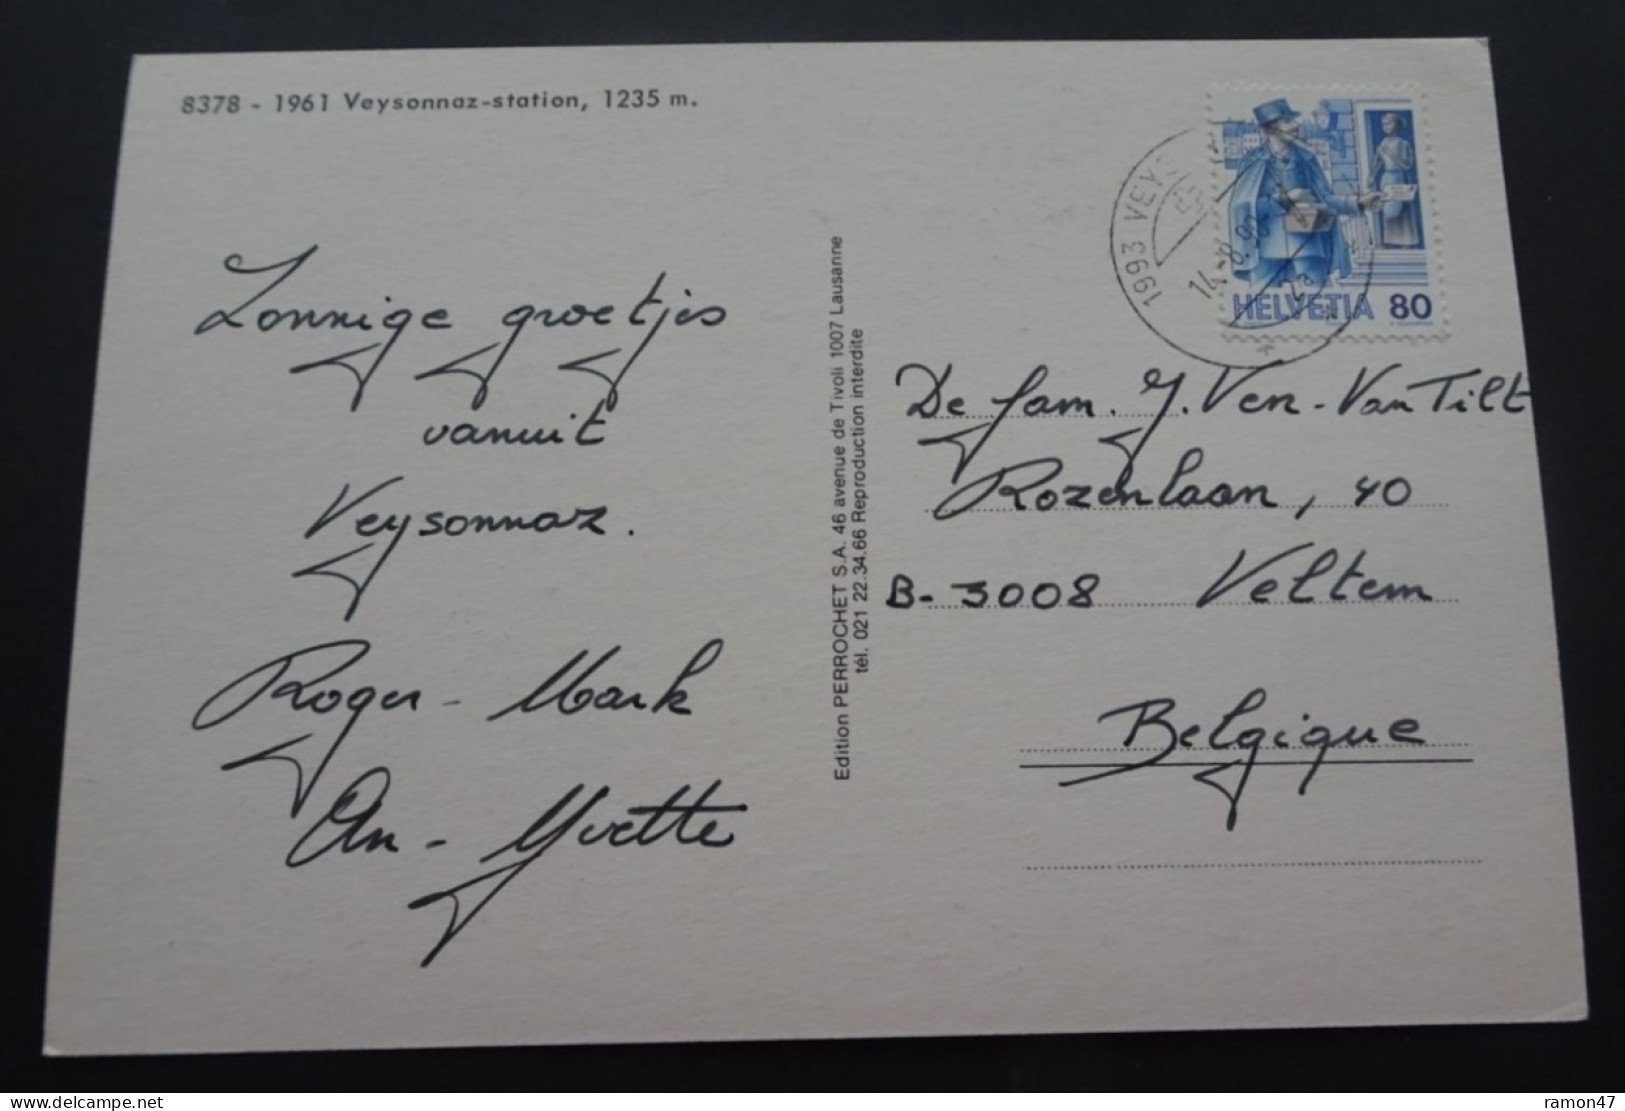 8378 - 1961 Veysonnaz-station, 1235 m.
Zonnige groetjes
vanuit
Veysonnaz.
Roger - Mark
An - Yvette
Edition PERROCHET S.A. 46 avenue de Tivoli 1007 Lausanne
tél. 021 22.34.66 Reproduction interdite
1993 VEYS
14.-8.90
HELVETIA 80
De fam. J. Ven - Van Tilt
Rozenlaan, 40
B- 3008 Veltem
Belgique
delcampe.net
ramon47